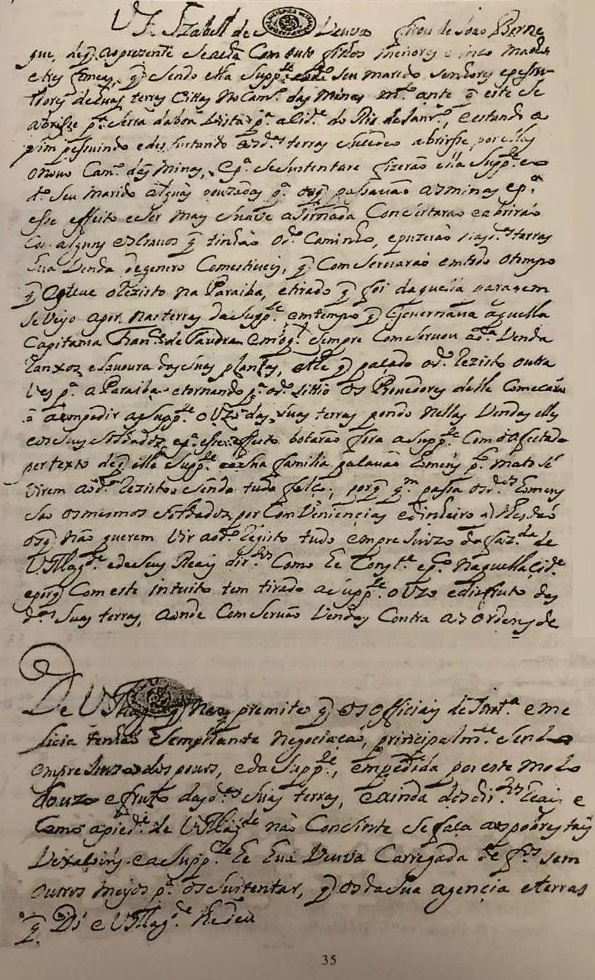 Izabell de S Veuva ficou de João Berne
que, de q. ao prezente se acha Com outo filhos menores e inco machos
e tres femeas, q. sendo ella Supp.te e o d.o Seu marido Senhores e possui-
dores de huas terras Cittas No Cam.o das Minas m.to ante q. este se
abrisse p.a Serra da boa Vista p.a a Cid.e do Rio de Janr.o, e estando a
sim pessuindo e desfrutando as d.as terras Sucedeo abrirse por ellas
o novo Cam.o das Minas, e p.a se sustentare fizerão ella Supp.te e o
d.o Seu Marido alguas pouzadas p.a os q. passavão as minas e p.a
esse effeito e ser mais suave a Jornada Concertarão e abrirão
Co alguns escravos q. tinhão o d.o Caminho, e puzerão nas d.as terras
hua Venda de genero Comestiveis, q. Comservarão em todo o tempo
q. esteve o Rezisto na Paraiba, e tirado q. foi daquela paragem
se veyo a por nas terras da Supp.te em tempo q. Governava aquella
Capitania Fran.co de Tavora e sempre Comservou a d.a Venda
Ranxos e lavoura das suas plantas, até q. paçado o d.o Rezisto outra
ves p.a a Paraiba e tornando p.a o d.o sitio os Provedores delle Começarão
a empedir a Supp.te o Uzo das suas terras pondo nellas Vendas elles
e os seus Soldados, e p.a esse effeito botarão fora a Supp.te Com o afectado
pertexto de q. ella Supp.te e a sua familia paçavão Homens p.lo Mato Sé
virem ao d.o Rezisto, sendo tudo falço, porq. q.m passa os d.os Homens
são os mesmos Soldados por Comveniencias e dinheiro q. lhes dão
os q. não querem vir ao d.o Registo tudo em prejuizo da faz.da de
V. Mag.de e de Seus Reais dir.tos Como he Const.e e p.co naquella Cid.e
e porq. Com este intuito tem tirado a Supp.te o Uzo e disfruto das
d.as Suas terras, aonde Comservão Vendas Contra as Ordens de
De V. Mag.de q. Não premite q. os officiais de Just.a e me
licia tenhão Semilhante Negociação, principalm.te sendo
em prejuizo dos povos, e da Supp.te, empedida por este modo
do uzo e fruto das d.as Suas terras, e ainda dos dir.tos Reais e
Como a pied.e de V. Mag.de não Concinte se faça aos pobres tais
Vexações e a Supp.te he hua Veuva Carregada de f.os sem
outros meyos p.a os sustentar, q. os da Sua agencia e terras
P. a V. Mag.de
35